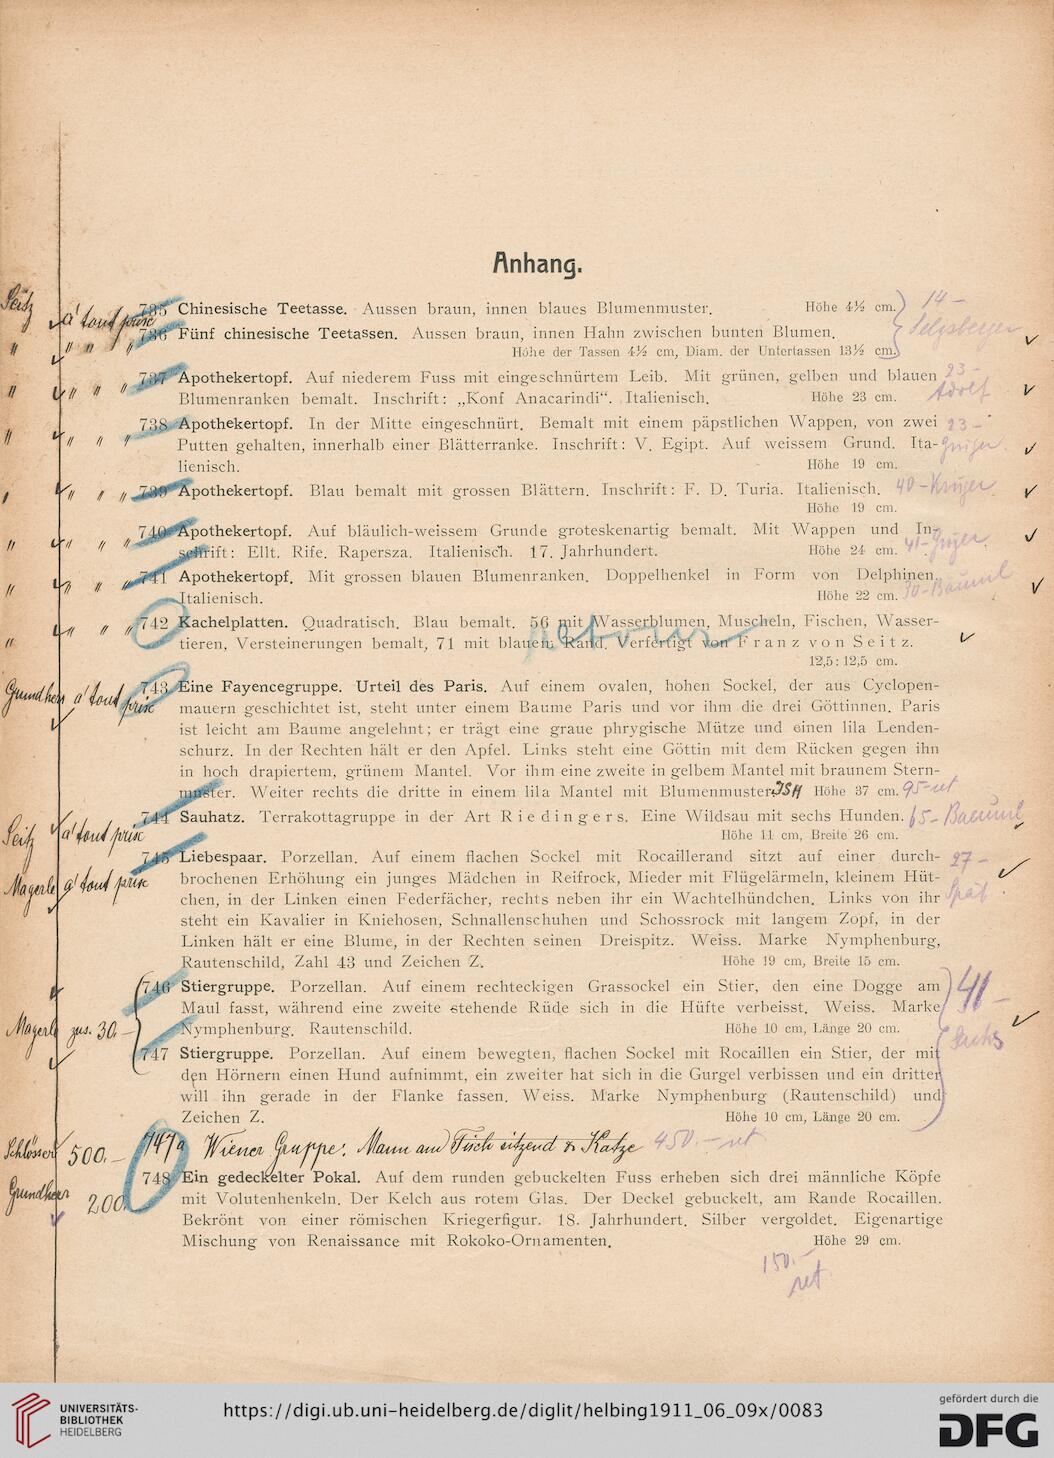 Anhang.
Seitz à tout prise 735 Chinesische Teetasse. Aussen braun, innen blaues Blumenmuster. Höhe 4½ cm. 14 –
" " " " 736 Fünf chinesische Teetassen. Aussen braun, innen Hahn zwischen bunten Blumen.
Höhe der Tassen 4½ cm, Diam. der Untertassen 13½ cm.
" " " " 737 Apothekertopf. Auf niederem Fuss mit eingeschnürtem Leib. Mit grünen, gelben und blauen 23 –
Blumenranken bemalt. Inschrift: „Konf Anacarindi“. Italienisch. Höhe 23 cm. Adolf
" " " " 738 Apothekertopf. In der Mitte eingeschnürt. Bemalt mit einem päpstlichen Wappen, von zwei 23 –
Putten gehalten, innerhalb einer Blätterranke. Inschrift: V. Egipt. Auf weissem Grund. Ita-
lienisch. Höhe 19 cm.
" " " " 739 Apothekertopf. Blau bemalt mit grossen Blättern. Inschrift: F. D. Turia. Italienisch. 40 –
Höhe 19 cm.
" " " " 740 Apothekertopf. Auf bläulich-weissem Grunde groteskenartig bemalt. Mit Wappen und In-
schrift: Ellt. Rife. Rapersza. Italienisch. 17. Jahrhundert. Höhe 24 cm. 41 –
" " " " 741 Apothekertopf. Mit grossen blauen Blumenranken. Doppelhenkel in Form von Delphinen.
Italienisch. Höhe 22 cm. 30 – Bäuml
" " " " 742 Kachelplatten. Quadratisch. Blau bemalt. 56 mit Wasserblumen, Muscheln, Fischen, Wasser-
tieren, Versteinerungen bemalt, 71 mit blauem Rand. Verfertigt von Franz von Seitz.
retour
12,5 : 12,5 cm.
Grundherr à tout prise 743 Eine Fayencegruppe. Urteil des Paris. Auf einem ovalen, hohen Sockel, der aus Cyclopen-
mauern geschichtet ist, steht unter einem Baume Paris und vor ihm die drei Göttinnen. Paris
ist leicht am Baume angelehnt; er trägt eine graue phrygische Mütze und einen lila Lenden-
schurz. In der Rechten hält er den Apfel. Links steht eine Göttin mit dem Rücken gegen ihn
in hoch drapiertem, grünem Mantel. Vor ihm eine zweite in gelbem Mantel mit braunem Stern-
muster. Weiter rechts die dritte in einem lila Mantel mit Blumenmuster. Höhe 37 cm. 95 – ret
Seitz à tout prise 744 Sauhatz. Terrakottagruppe in der Art Riedingers. Eine Wildsau mit sechs Hunden. 65 – Baeuml
Höhe 11 cm, Breite 26 cm.
Magerle à tout prise 745 Liebespaar. Porzellan. Auf einem flachen Sockel mit Rocaillerand sitzt auf einer durch- 27 –
brochenen Erhöhung ein junges Mädchen in Reifrock, Mieder mit Flügelärmeln, kleinem Hüt-
chen, in der Linken einen Federfächer, rechts neben ihr ein Wachtelhündchen. Links von ihr Spät
steht ein Kavalier in Kniehosen, Schnallenschuhen und Schossrock mit langem Zopf, in der
Linken hält er eine Blume, in der Rechten seinen Dreispitz. Weiss. Marke Nymphenburg,
Rautenschild, Zahl 43 und Zeichen Z. Höhe 19 cm, Breite 15 cm.
746 Stiergruppe. Porzellan. Auf einem rechteckigen Grassockel ein Stier, den eine Dogge am 41 –
Maul fasst, während eine zweite stehende Rüde sich in die Hüfte verbeisst. Weiss. Marke
Magerle zus. 30. – Nymphenburg. Rautenschild. Höhe 10 cm, Länge 20 cm.
747 Stiergruppe. Porzellan. Auf einem bewegten, flachen Sockel mit Rocaillen ein Stier, der mit
den Hörnern einen Hund aufnimmt, ein zweiter hat sich in die Gurgel verbissen und ein dritter
will ihn gerade in der Flanke fassen. Weiss. Marke Nymphenburg (Rautenschild) und
Zeichen Z. Höhe 10 cm, Länge 20 cm.
Schlösser 500. – 747a Wiener Gruppe: Mann am Tisch sitzend & Katze 450. – ret
Grundherr 200. 748 Ein gedeckelter Pokal. Auf dem runden gebuckelten Fuss erheben sich drei männliche Köpfe
mit Volutenhenkeln. Der Kelch aus rotem Glas. Der Deckel gebuckelt, am Rande Rocaillen.
Bekrönt von einer römischen Kriegerfigur. 18. Jahrhundert. Silber vergoldet. Eigenartige
Mischung von Renaissance mit Rokoko-Ornamenten. Höhe 29 cm.
150. –
ret
UNIVERSITÄTS-
BIBLIOTHEK
HEIDELBERG
https://digi.ub.uni-heidelberg.de/diglit/helbing1911_06_09x/0083
gefördert durch die
DFG